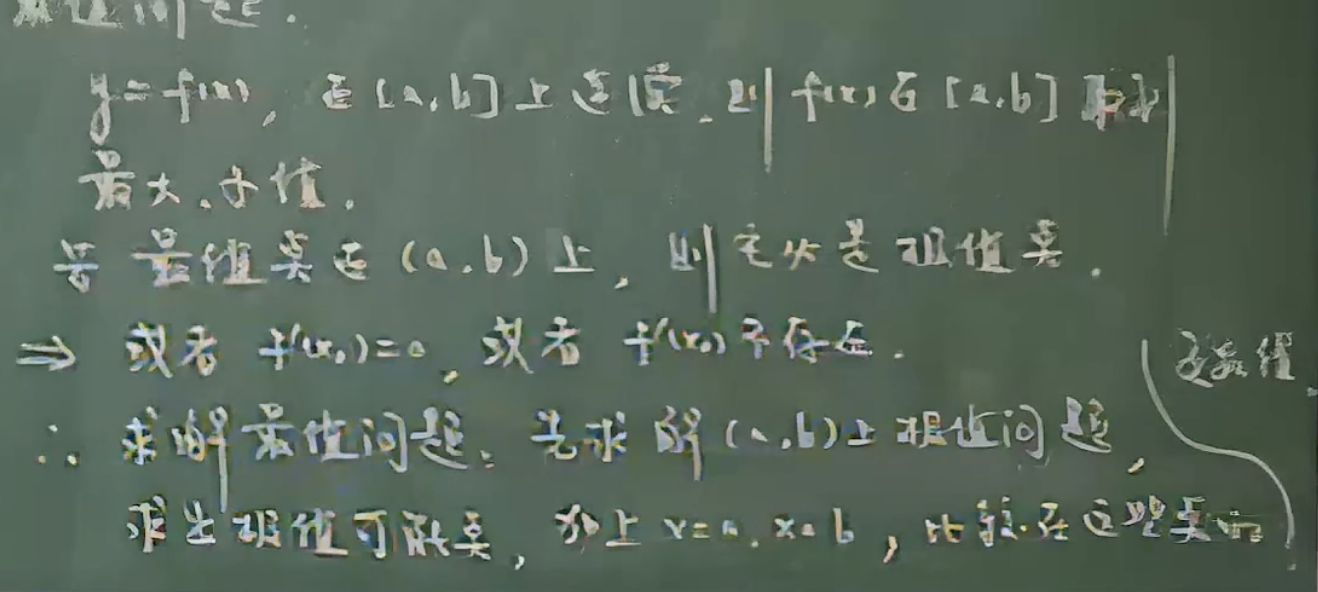 最值问题.
y=f(x), 在[a,b]上连续.则f(x)在[a,b]取到
最大、小值.
若最值点在(a,b)上,则它必是极值点.
⇒ 或者 f'(x₀)=0, 或者 f'(x₀)不存在.
∴ 求解最值问题,先求解(a,b)上极值问题,
求出极值可能点,加上x=a,x=b,比较在这些点的
函数值.